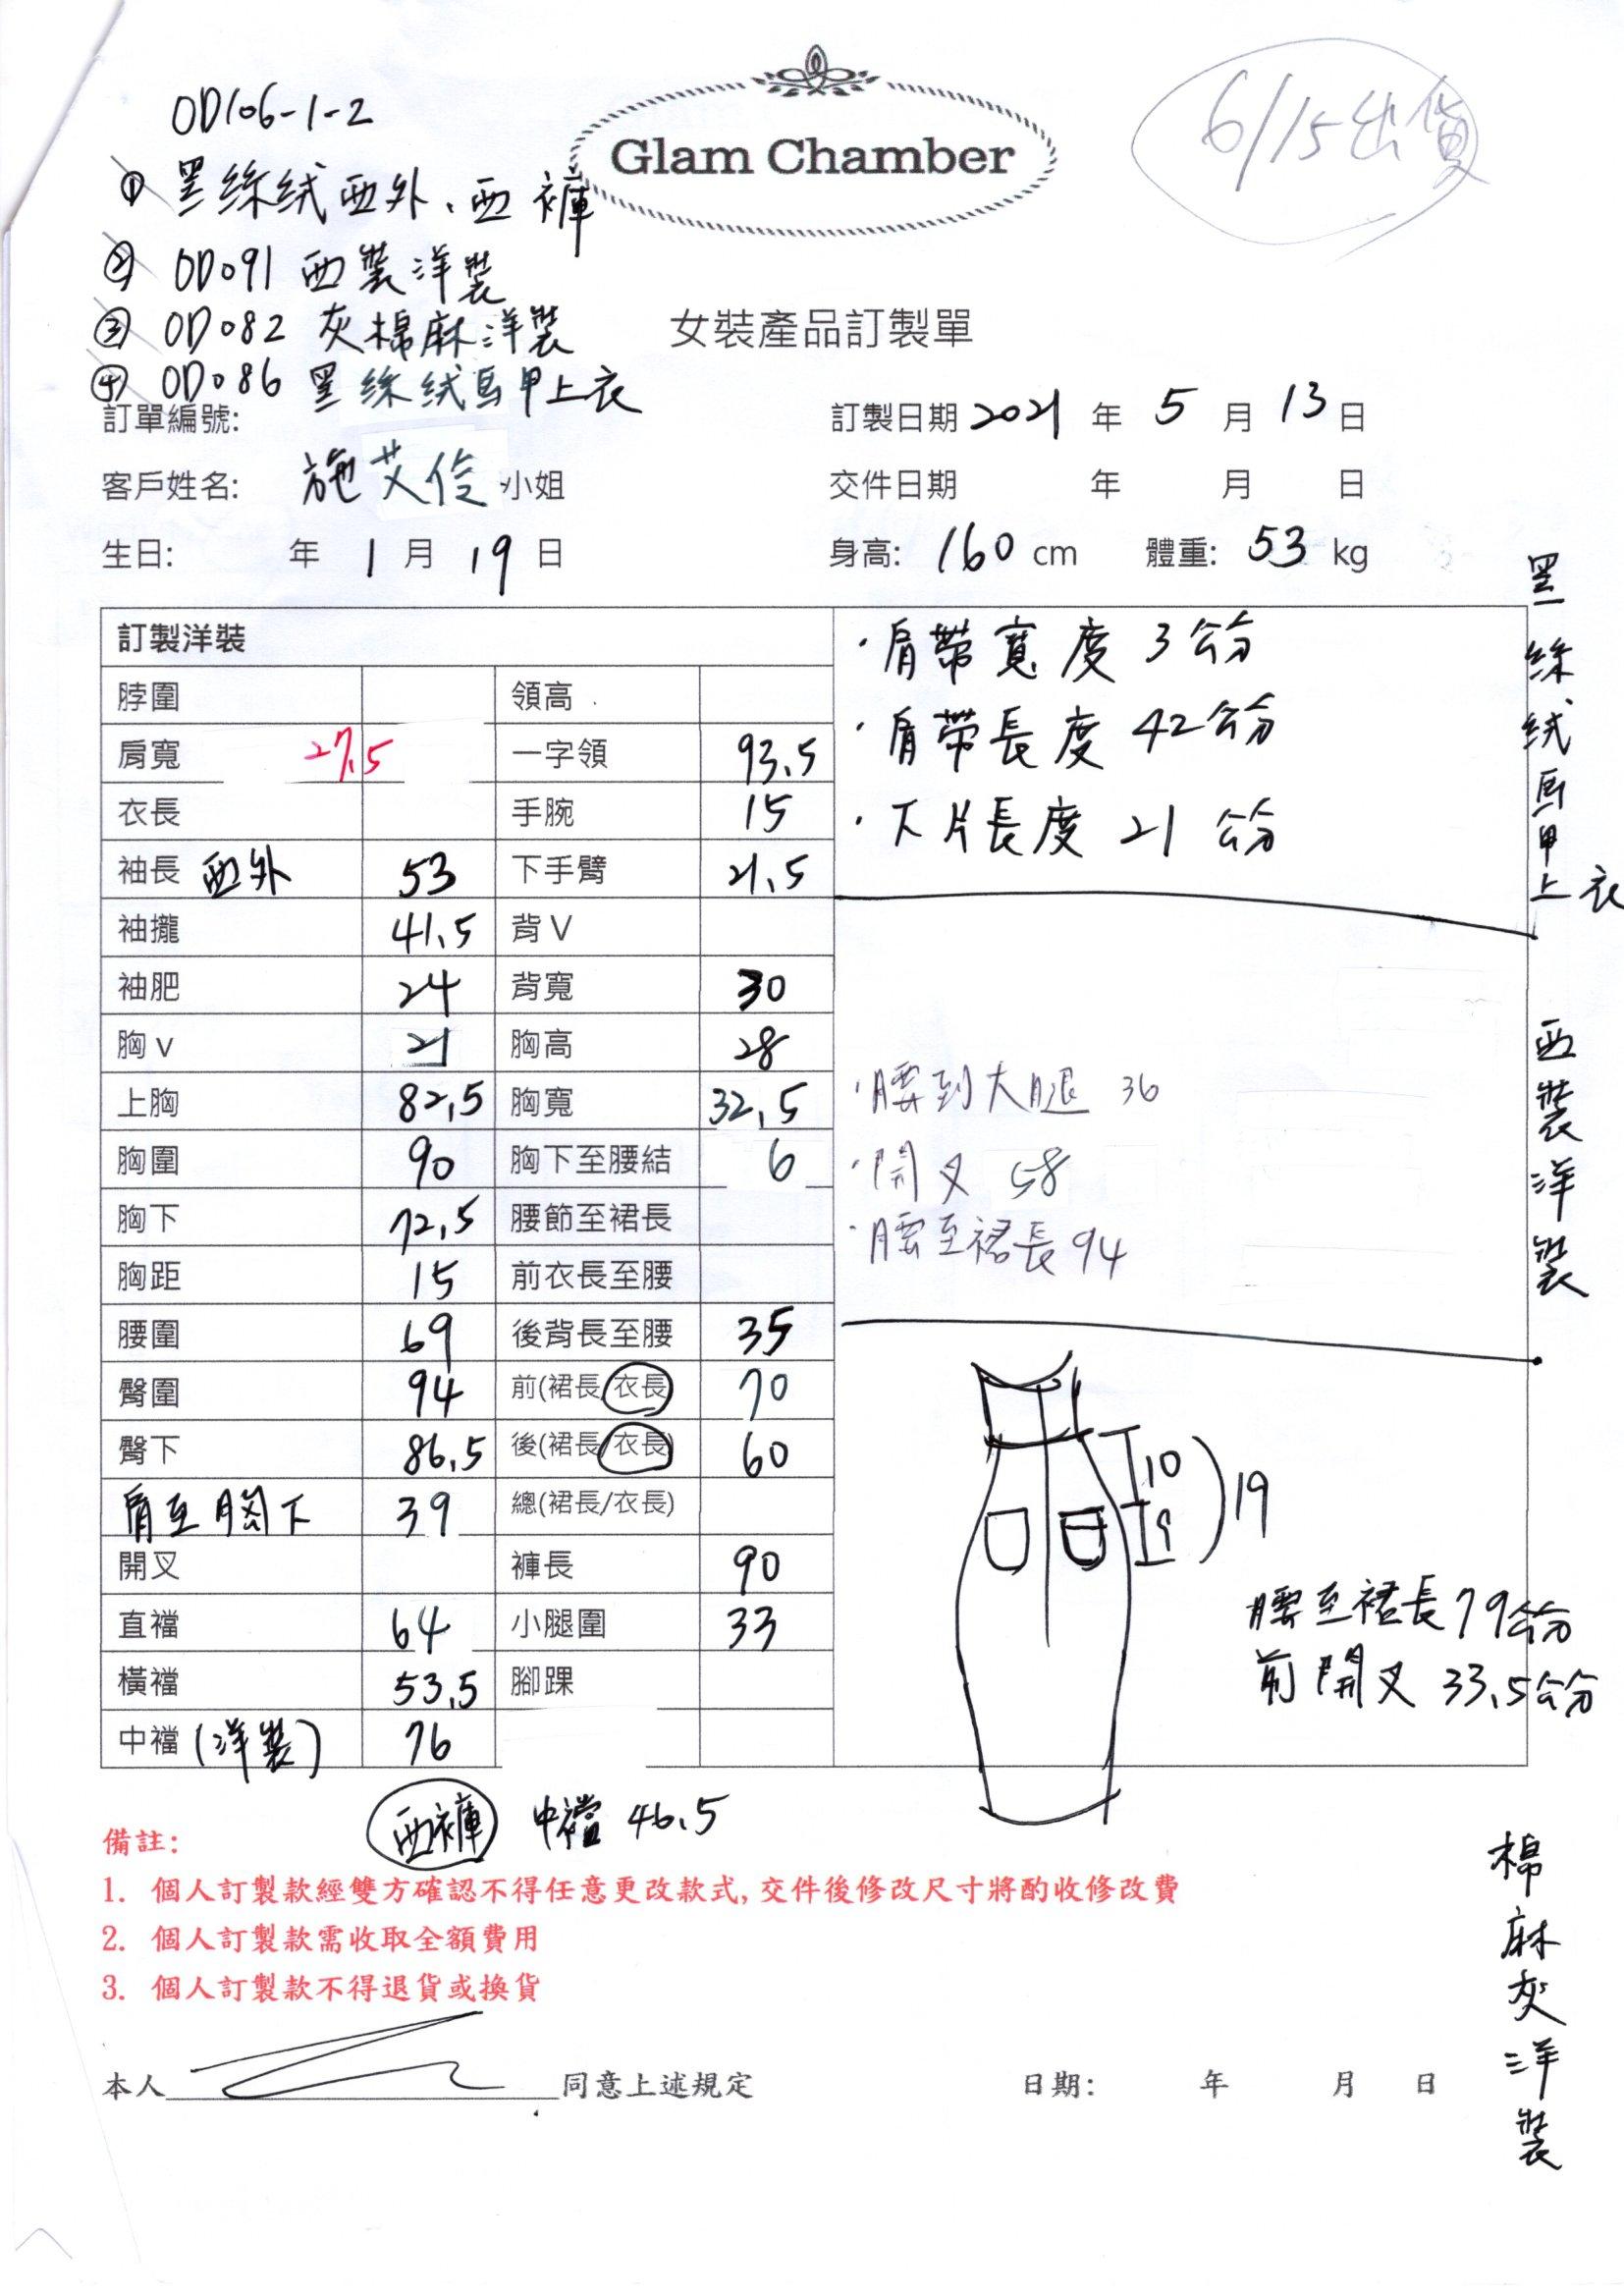 OD106-1-2
① 黑絲絨西外、西褲
② OD091 西裝洋裝
③ OD082 灰棉麻洋裝
④ OD086 黑絲絨馬甲上衣
Glam Chamber
6/15出貨
女裝產品訂製單
訂單編號:
訂製日期 2021 年 5 月 13 日
客戶姓名: 施艾伶 小姐
交件日期 年 月 日
生日: 年 1 月 19 日
身高: 160 cm 體重: 53 kg
訂製洋裝
脖圍 領高
肩寬 27.5 一字領 93.5
衣長 手腕 15
袖長 西外 53 下手臂 21.5
袖攏 41.5 背V
袖肥 24 背寬 30
胸v 21 胸高 28
上胸 82.5 胸寬 32.5
胸圍 90 胸下至腰結 6
胸下 72.5 腰節至裙長
胸距 15 前衣長至腰
腰圍 69 後背長至腰 35
臀圍 94 前(裙長/衣長) 70
臀下 86.5 後(裙長/衣長) 60
肩至胸下 39 總(裙長/衣長)
開叉 褲長 90
直襠 64 小腿圍 33
橫襠 53.5 腳踝
中襠(洋裝) 76
·肩帶寬度 3公分
·肩帶長度 42公分
·下片長度 21公分
黑絲絨馬甲上衣
·腰到大腿 36
·開叉 58
·腰至裙長 94
西裝洋裝
10
9
19
腰至裙長79公分
前開叉 33.5公分
棉麻灰洋裝
西褲 中襠 46.5
備註:
1. 個人訂製款經雙方確認不得任意更改款式,交件後修改尺寸將酌收修改費
2. 個人訂製款需收取全額費用
3. 個人訂製款不得退貨或換貨
本人 同意上述規定
日期: 年 月 日